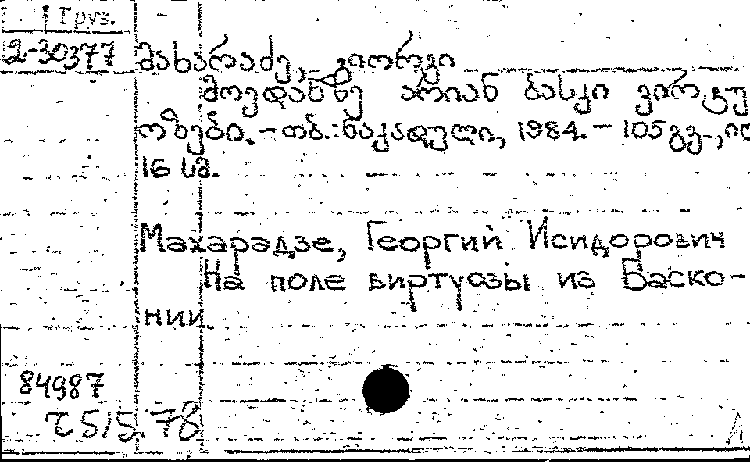 Груз.
2-30377
მახარაძე, გიორგი
მოედანზე არიან ბასკი ვირტუ
ოზები. – თბ.: ნაკადული, 1984. – 105 გვ., ილ
16 სმ.
Махарадзе, Георгий Исидорович
На поле виртуозы из Баско-
нии
84987
7 5/5. 78